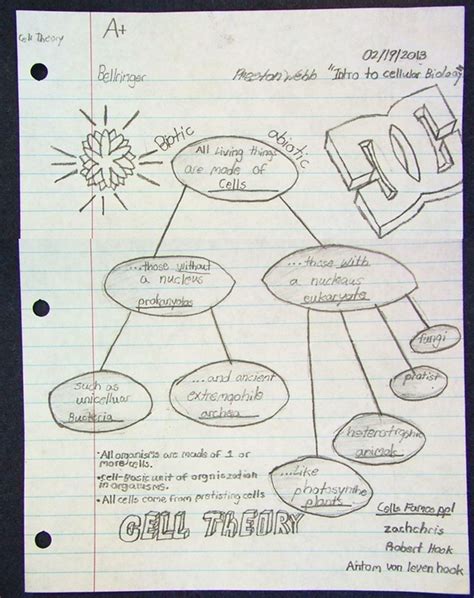 Cells Theory
A+
02/19/2013
Bellringer
Preston Webb "Intro to cellular Biology"
Biotic
abiotic
All Living things
are made of
Cells
...those without
a nucleus
prokaryotes
...those with
a nucleaus
eukaryote
fungi
protist
such as
unicelluar
Bacteria
...and ancient
extremophile
archea
heterotrophic
animals
...Like
photosynthe
plants
•All organisms are made of 1 or
more cells.
•cell-Basic unit of orgnization
in organisms.
•All cells come from prexisting cells
CELL THEORY
Cells Famos ppl
zachchris
Robert Hook
Antom von leven hook